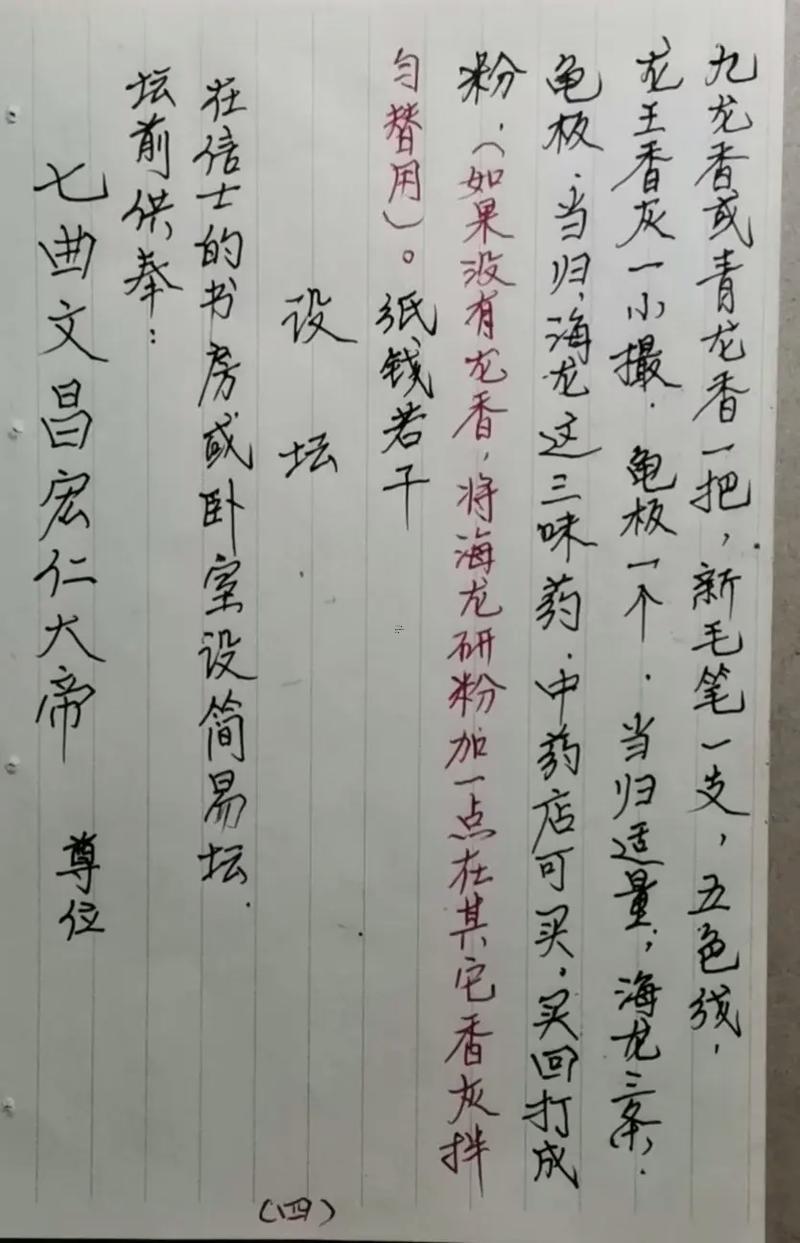 九龙香或青龙香一把，新毛笔一支，五色线，
龙王香灰一小撮．龟板一个．当归适量，海龙三条，．
龟板．当归，海龙这三味药．中药店可买，买回打成
粉．（如果没有龙香，将海龙研粉加一点在其它香灰拌
匀替用）。纸钱若干
设坛
在信士的书房或卧室设简易坛．
坛前供奉：
七曲文昌宏仁大帝 尊位
（四）